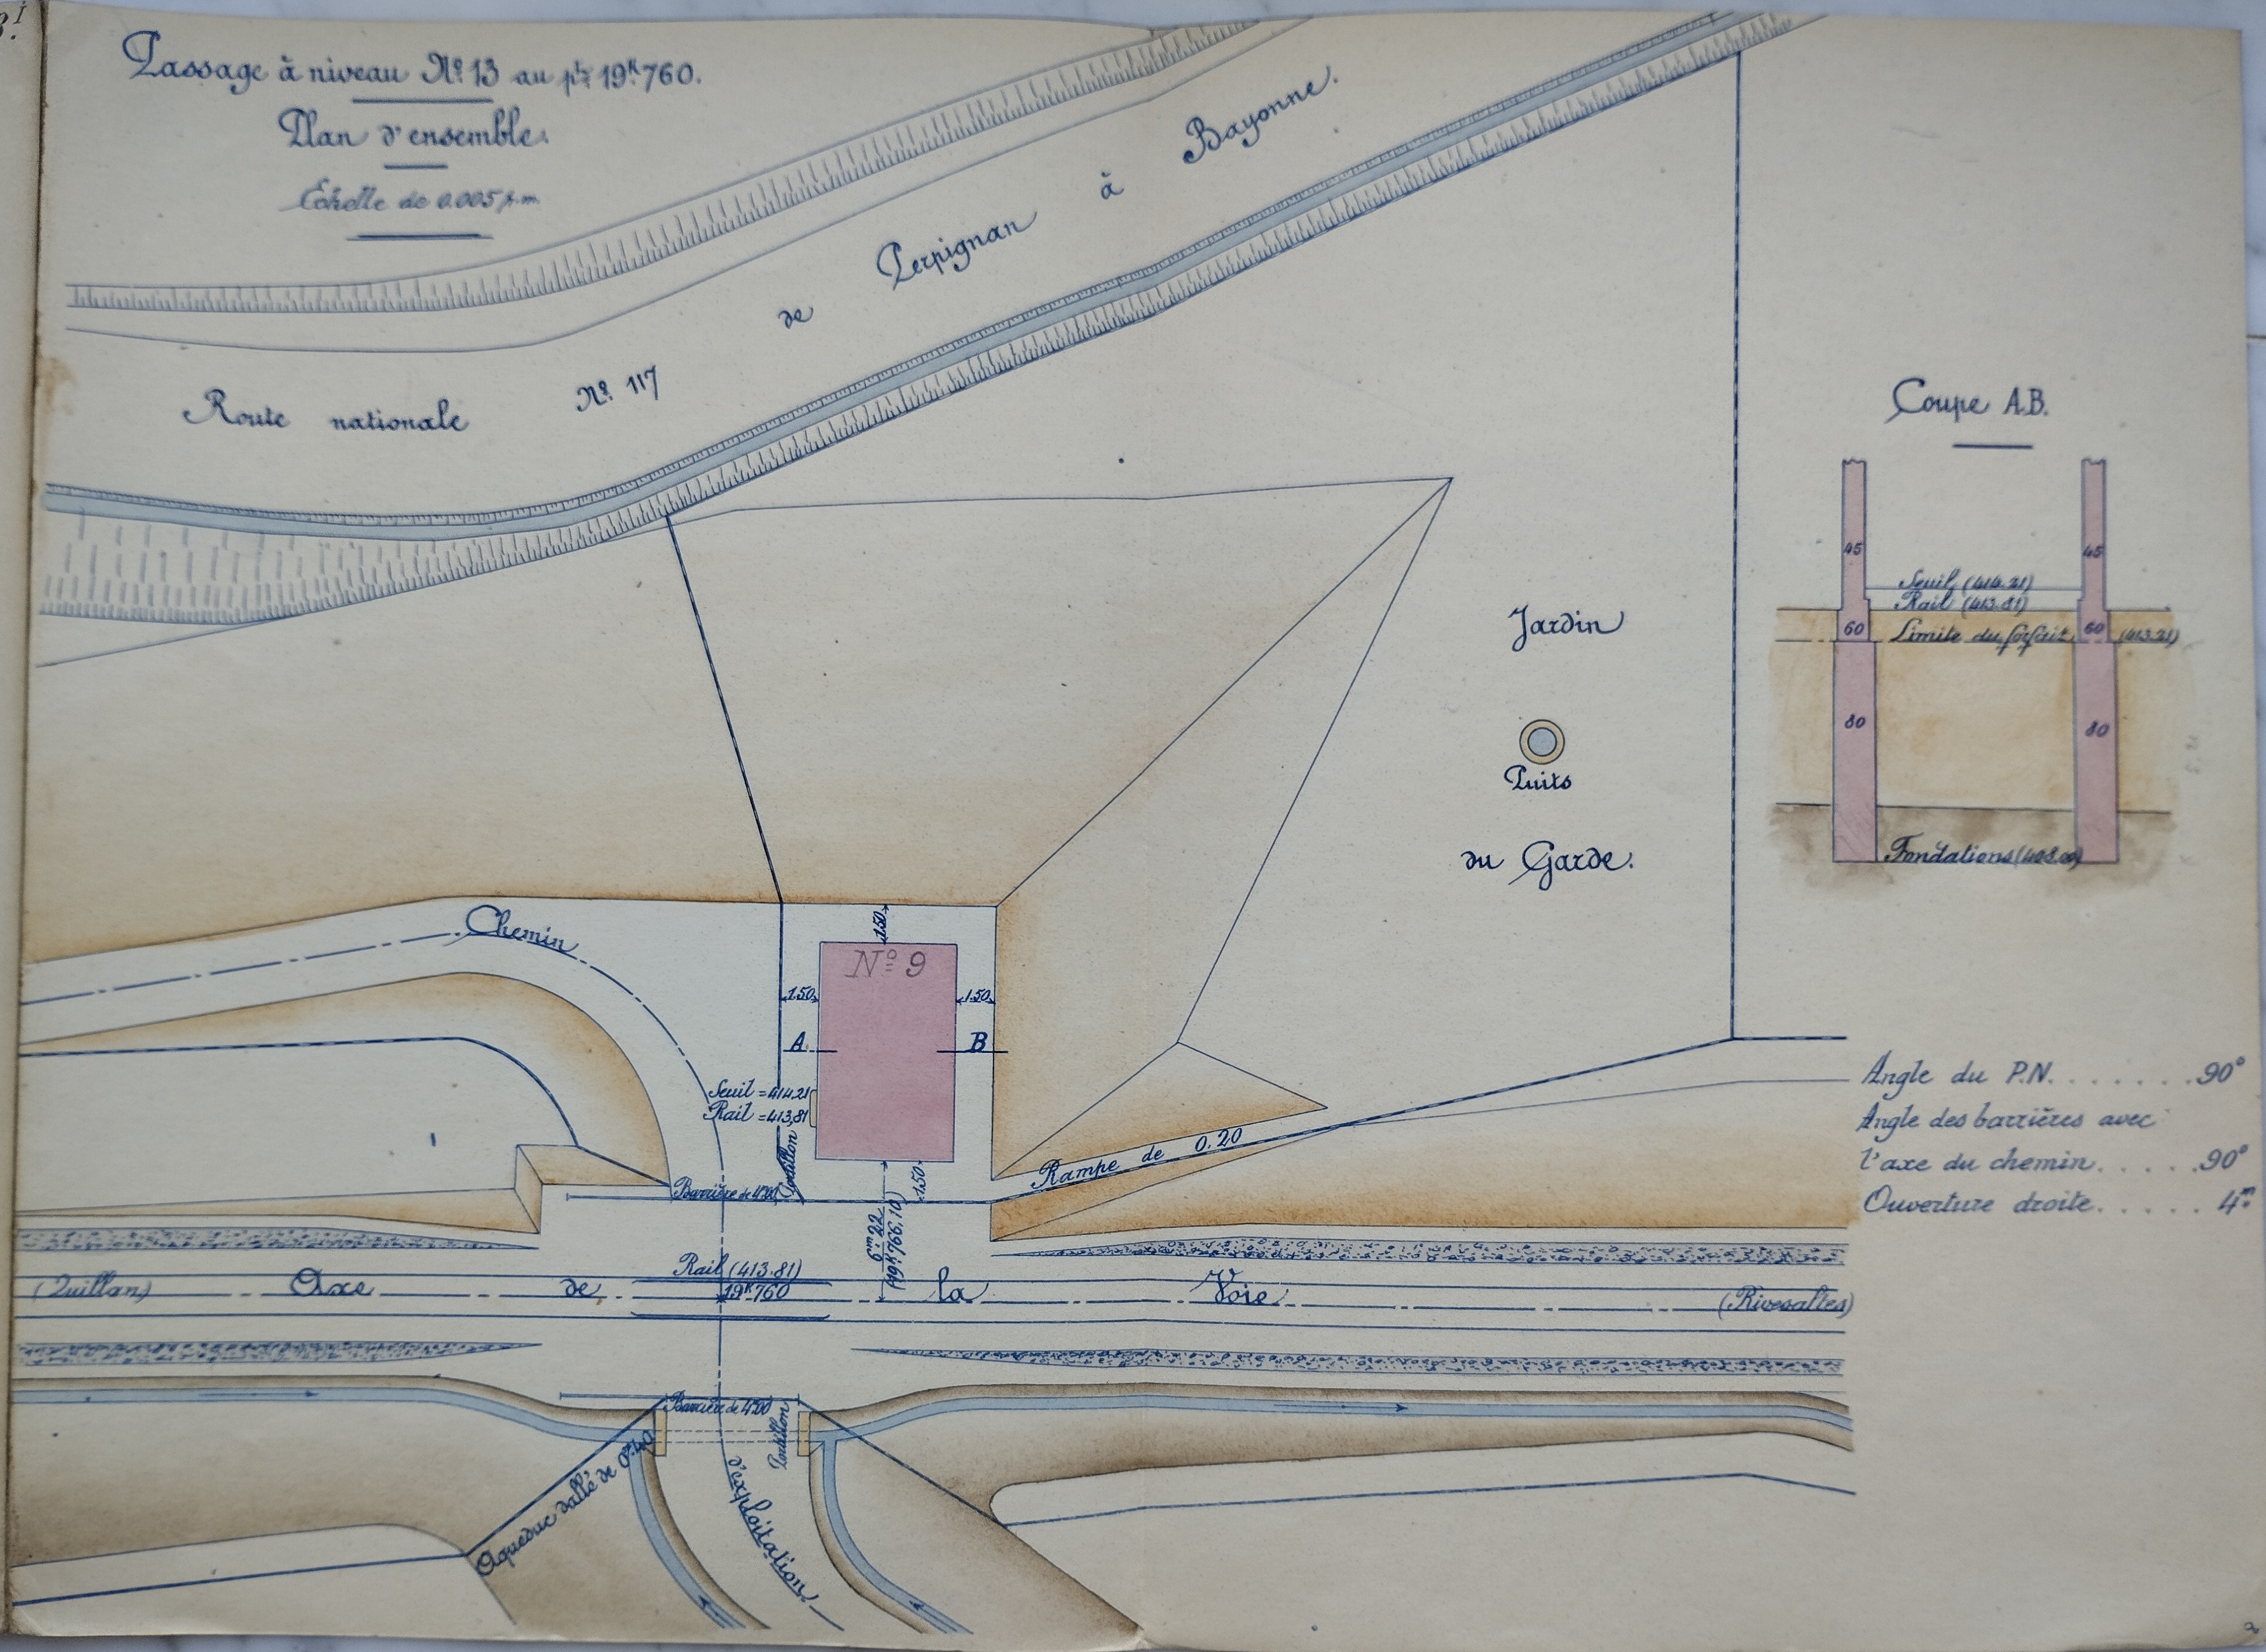 Passage à niveau Nº 13 au pt 19K760.
Plan d'ensemble.
Echelle de 0.005 p.m.
Route nationale Nº 117 de Perpignan à Bayonne.
Coupe A.B.
45 45
Seuil (414.21)
Rail (413.81)
60 Limite du forfait 60 (413.21)
80 80
Fondations
Jardin
Puits
du Garde.
Chemin
1.50
Nº 9
1.50 1.50
A B
Seuil = 414.21
Rail = 413,81
Portillon
Rampe de 0.20
Barrière de 4m00
1.50
6m22
(19K766.10)
Angle du P.N. . . . . . . . 90°
Angle des barrières avec
l'axe du chemin. . . . . 90°
Ouverture droite. . . . . 4m
Rail (413.81)
19K760
(Quillan) Axe de la Voie (Rivesaltes)
Barrière de 4m00
Portillon
Aqueduc dallé de 0m40
d'exploitation